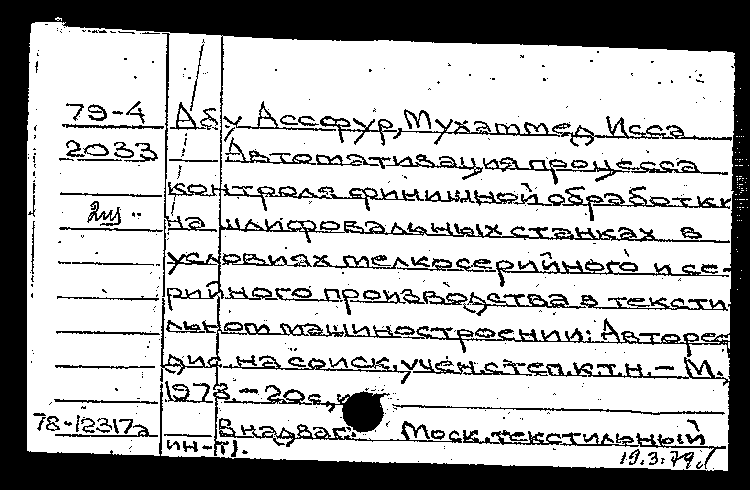 79-4 Абу Ассфур, Мухаммед Исса
2033 Автоматизация процесса
контроля финишной обработки
2ш на шлифовальных станках в
условиях мелкосерийного и се-
рийного производства в тексти
льном машиностроении: Авторе
дис. на соиск. учен. степ. к.т.н. - М.,
1978 - 20с.,
78-12317а В надзаг.: Моск. текстильный
ин-т).
19.3.79